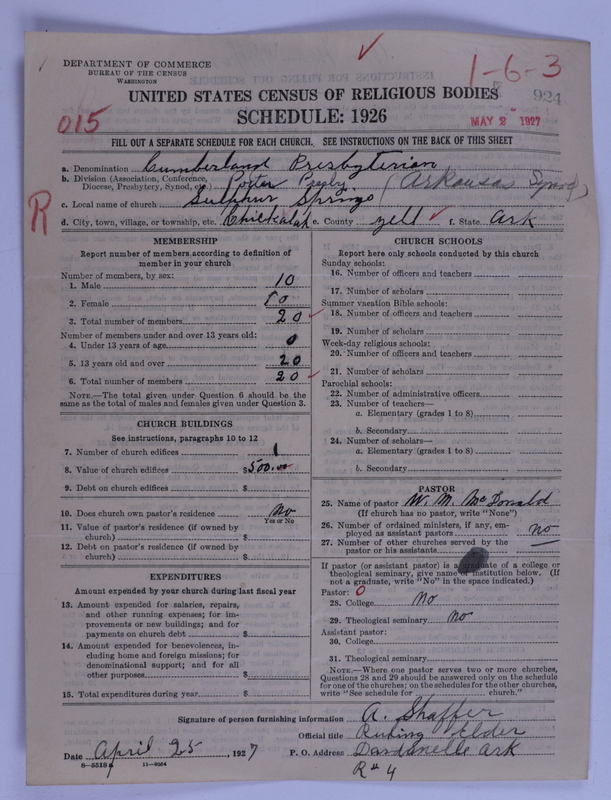 DEPARTMENT OF COMMERCE
BUREAU OF THE CENSUS
WASHINGTON
1-6-3
924
UNITED STATES CENSUS OF RELIGIOUS BODIES
015
SCHEDULE: 1926
MAY 2 1927
FILL OUT A SEPARATE SCHEDULE FOR EACH CHURCH. SEE INSTRUCTIONS ON THE BACK OF THIS SHEET
a. Denomination Cumberland Presbyterian
b. Division (Association, Conference, Diocese, Presbytery, Synod, etc.) Porter Presby. (Arkansas Synod)
c. Local name of church Sulphur Springs
R
d. City, town, village, or township, etc. Chickalah e. County Yell f. State Ark
MEMBERSHIP
Report number of members according to definition of member in your church
Number of members, by sex:
1. Male 10
2. Female 10
3. Total number of members 20
Number of members under and over 13 years old:
4. Under 13 years of age 0
5. 13 years old and over 20
6. Total number of members 20
NOTE.—The total given under Question 6 should be the same as the total of males and females given under Question 3.
CHURCH BUILDINGS
See instructions, paragraphs 10 to 12
7. Number of church edifices 1
8. Value of church edifices $500.00
9. Debt on church edifices $
10. Does church own pastor's residence No
Yes or No
11. Value of pastor's residence (if owned by church) $
12. Debt on pastor's residence (if owned by church) $
EXPENDITURES
Amount expended by your church during last fiscal year
13. Amount expended for salaries, repairs, and other running expenses; for improvements or new buildings; and for payments on church debt $
14. Amount expended for benevolences, including home and foreign missions; for denominational support; and for all other purposes $
15. Total expenditures during year $
CHURCH SCHOOLS
Report here only schools conducted by this church
Sunday schools:
16. Number of officers and teachers
17. Number of scholars
Summer vacation Bible schools:
18. Number of officers and teachers
19. Number of scholars
Week-day religious schools:
20. Number of officers and teachers
21. Number of scholars
Parochial schools:
22. Number of administrative officers
23. Number of teachers—
a. Elementary (grades 1 to 8)
b. Secondary
24. Number of scholars—
a. Elementary (grades 1 to 8)
b. Secondary
PASTOR
25. Name of pastor W. M. McDonald
(If church has no pastor, write "None")
26. Number of ordained ministers, if any, employed as assistant pastors no
27. Number of other churches served by the pastor or his assistants —
If pastor (or assistant pastor) is a graduate of a college or theological seminary, give name of institution below. (If not a graduate, write "No" in the space indicated.)
Pastor: 0
28. College No
29. Theological seminary No
Assistant pastor:
30. College
31. Theological seminary
NOTE.—Where one pastor serves two or more churches, Questions 28 and 29 should be answered only on the schedule for one of the churches; on the schedules for the other churches, write "See schedule for church."
Signature of person furnishing information A. Shaffer
Official title Ruling Elder
Date April 25, 1927 P. O. Address Dardanelle Ark
8-5518a 11-9264
R#4